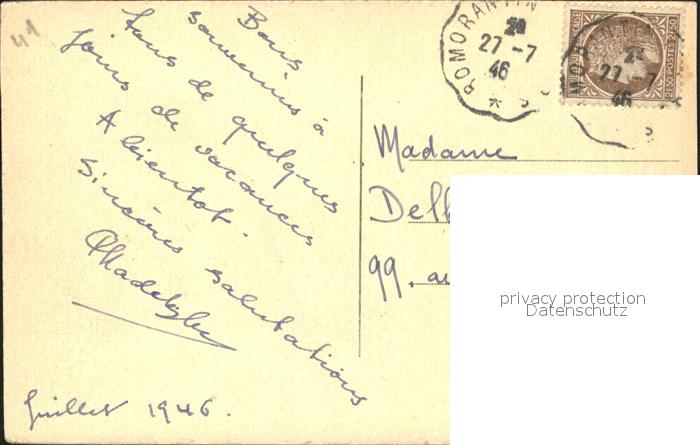 41
Bons
souvenirs à
tous de quelques
jours de vacances
A bientot.
Sincères salutations
Juillet 1946.
ROMORANTIN
22
27-7
46
22
27-7
46
POSTES 2F50
Madame
99, au
privacy protection
Datenschutz